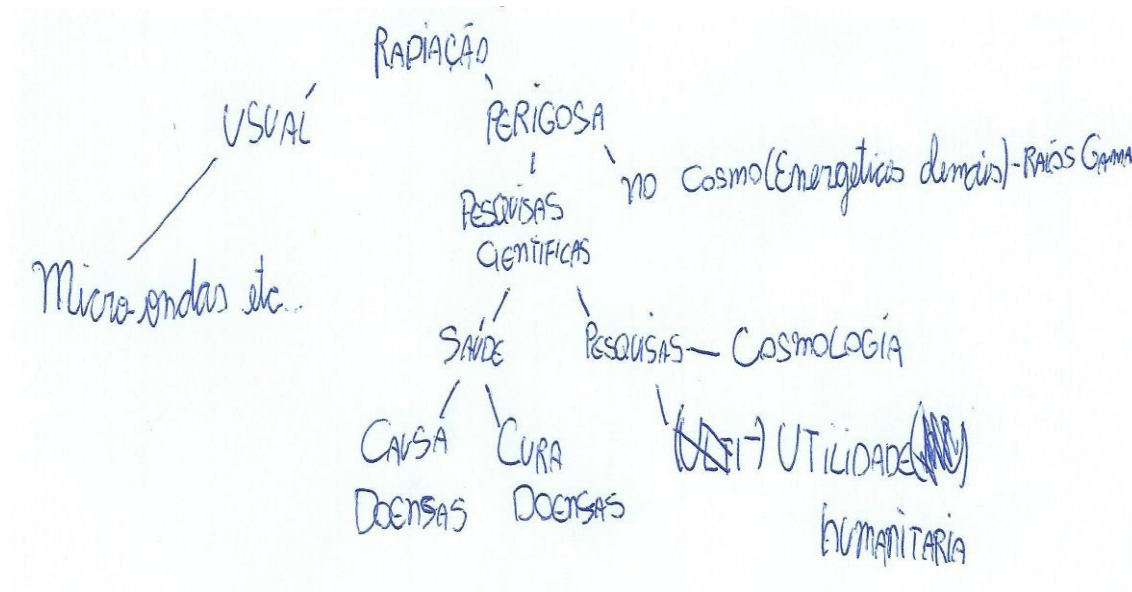 RADIAÇÃO
USUAL
PERIGOSA
NO COSMO (Energeticas demais) - RAIOS GAMA
PESQUISAS
CIENTIFICAS
Micro-ondas etc...
SAÚDE
PESQUISAS — COSMOLOGIA
CAUSA
DOENSAS
CURA
DOENSAS
UTILIDADE
HUMANITARIA